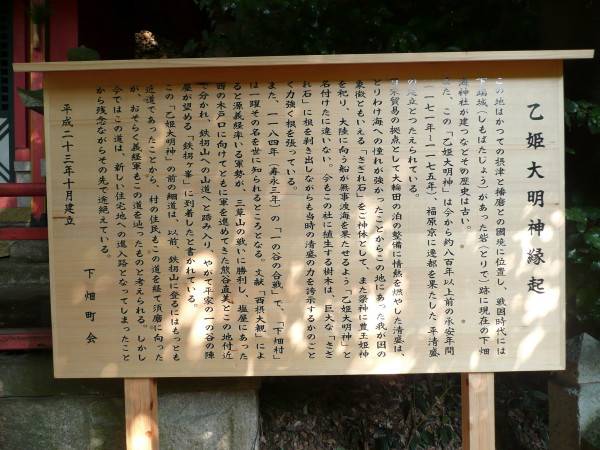 乙姫大明神縁起
この地はかつての摂津と播磨との国境に位置し、戦国時代には
下端城(しもばたじょう)があった砦(とりで)跡に現在の下畑
海神社が建つなどその歴史は古い。
この「乙姫大明神」は今から約八百年以上前の永安年間
(一一七一年~一一七五年)、福原京に遷都を果たした平清盛
の建立とつたえられている。
日宋貿易の拠点として大輪田の泊の整備に情熱を燃やした清盛は、
とりわけ海への憧れが強かったことからこの地にあった我が国の
象徴ともいえる「さざれ石」をご神体として、また祭神に豊玉姫神
を祀り、大陸に向う船が無事波海を果たせるよう「乙姫大明神」と
名付けたに違いない。今もこの社に植生する樹木は、巨大な「さざ
れ石」に根を剥き出しながらも当時の清盛の力を誇示するかのごと
く力強く根を張っている。
また、一一八四年(寿永三年)の「一の谷の合戦」で、「下畑村」
は一躍その名を世に知られるところとなる。文献「西摂大観」によ
ると源義経率いる軍勢が、三草山の戦いに勝利し、塩屋にあった
西の木戸口に向けてともに軍を進めてきた熊谷直実とこの地付近
で分かれ、鉄拐山への山道へと踏み入り、やがて平家の一の谷の陣
屋が望める「鉄拐ヶ峯」に到着したと書かれている。
この「乙姫大明神」の前の細道は、以前、鉄拐山に登るにはもっとも
近道であったことから、村の住民もこの道を経て須磨に向った
が、おそらく義経軍もこの道を辿ったものと考えられる。しかし
今ではこの道は、新しい住宅地への進入路となってしまったこと
から残念ながらその先で途絶えている。
平成二十三年十月建立
下畑町会